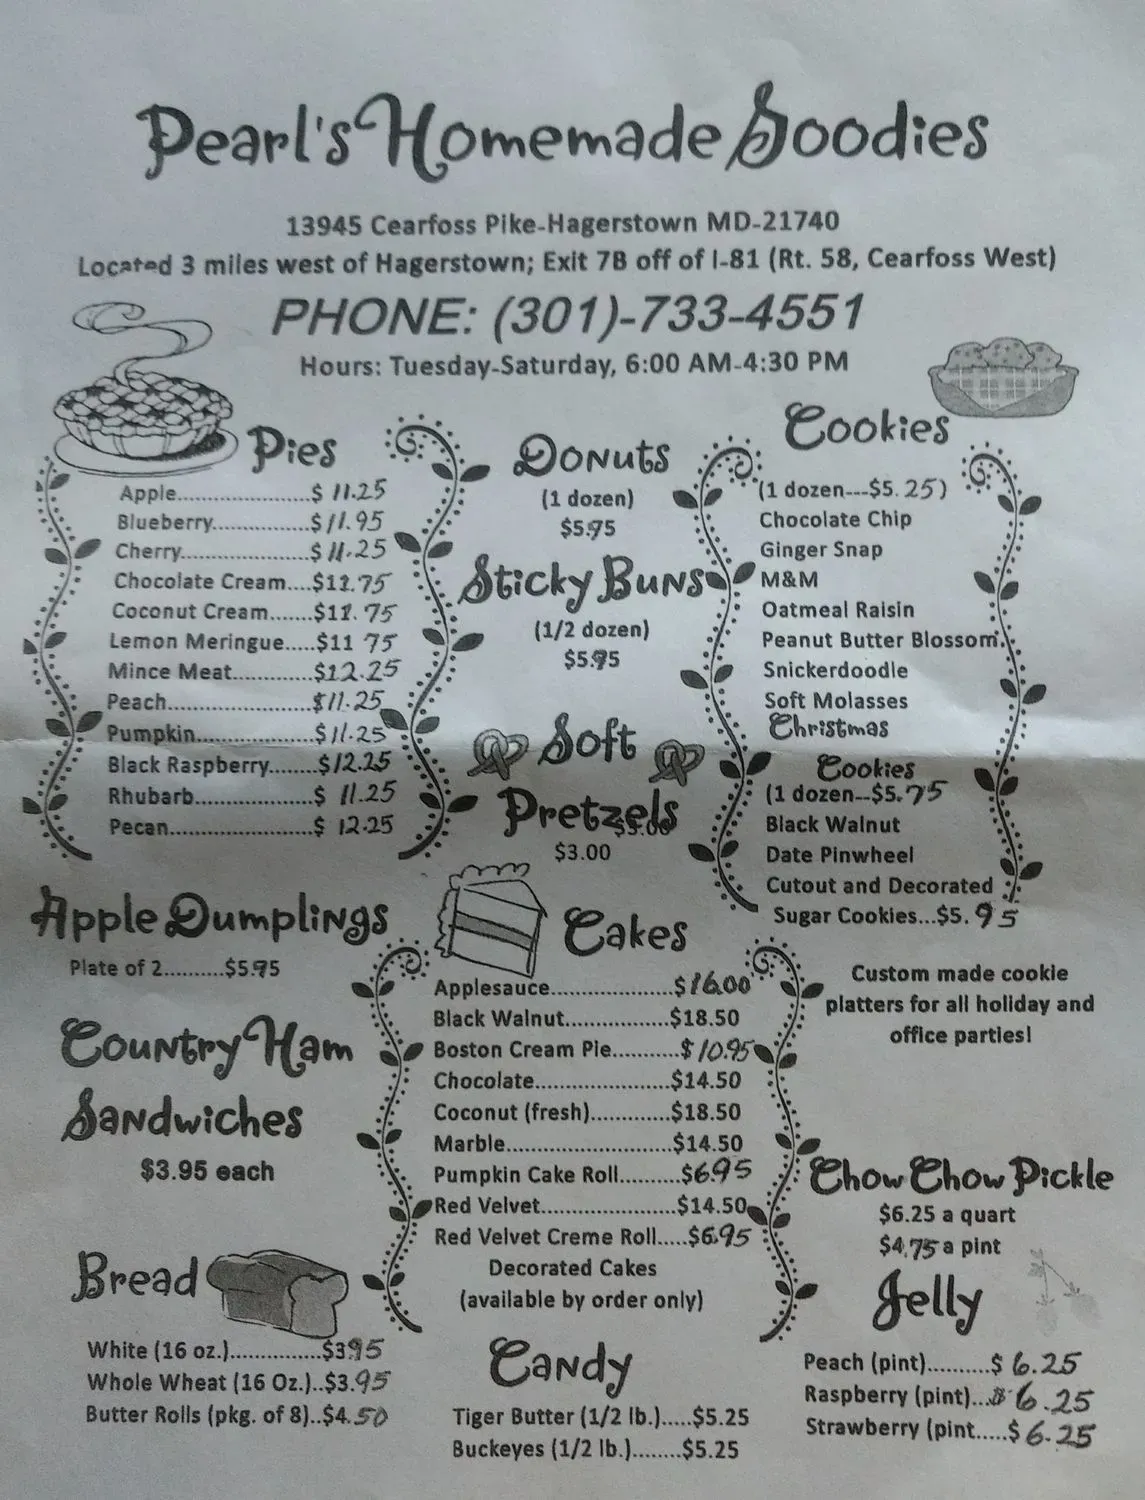 Pearl's Homemade Goodies
13945 Cearfoss Pike-Hagerstown MD-21740
Located 3 miles west of Hagerstown; Exit 7B off of I-81 (Rt. 58, Cearfoss West)
PHONE: (301)-733-4551
Hours: Tuesday-Saturday, 6:00 AM-4:30 PM
Pies
Apple......................$ 11.25
Blueberry................$11.95
Cherry......................$ 11.25
Chocolate Cream....$11.75
Coconut Cream.......$11.75
Lemon Meringue.....$11 75
Mince Meat.............$12.25
Peach........................$11.25
Pumpkin....................$11.25
Black Raspberry.......$12.25
Rhubarb....................$ 11.25
Pecan........................$ 12.25
Donuts
(1 dozen)
$5.95
Sticky Buns
(1/2 dozen)
$5.95
Soft
Pretzels
$3.00
$3.00
Cookies
(1 dozen---$5.25)
Chocolate Chip
Ginger Snap
M&M
Oatmeal Raisin
Peanut Butter Blossom
Snickerdoodle
Soft Molasses
Christmas
Cookies
(1 dozen--$5.75
Black Walnut
Date Pinwheel
Cutout and Decorated
Sugar Cookies...$5.95
Custom made cookie
platters for all holiday and
office parties!
Apple Dumplings
Plate of 2..........$5.95
Country Ham
Sandwiches
$3.95 each
Bread
White (16 oz.)...............$3.95
Whole Wheat (16 Oz.)..$3.95
Butter Rolls (pkg. of 8)..$4.50
Cakes
Applesauce....................$16.00
Black Walnut.................$18.50
Boston Cream Pie...........$10.95
Chocolate......................$14.50
Coconut (fresh).............$18.50
Marble...........................$14.50
Pumpkin Cake Roll..........$6.95
Red Velvet......................$14.50
Red Velvet Creme Roll.....$6.95
Decorated Cakes
(available by order only)
Candy
Tiger Butter (1/2 lb.).....$5.25
Buckeyes (1/2 lb.)........$5.25
Chow Chow Pickle
$6.25 a quart
$4.75 a pint
Jelly
Peach (pint)..........$ 6.25
Raspberry (pint)...$ 6.25
Strawberry (pint.....$ 6.25